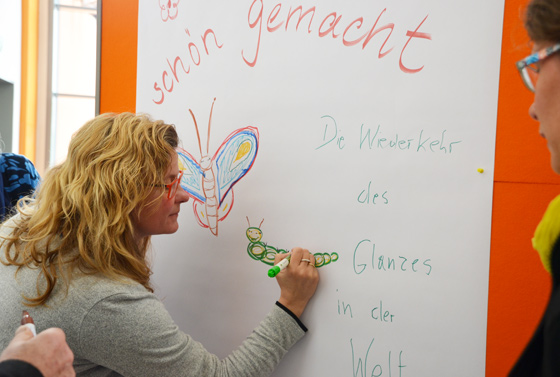 schön gemacht
Die Wiederkehr
des
Glanzes
in der
Welt